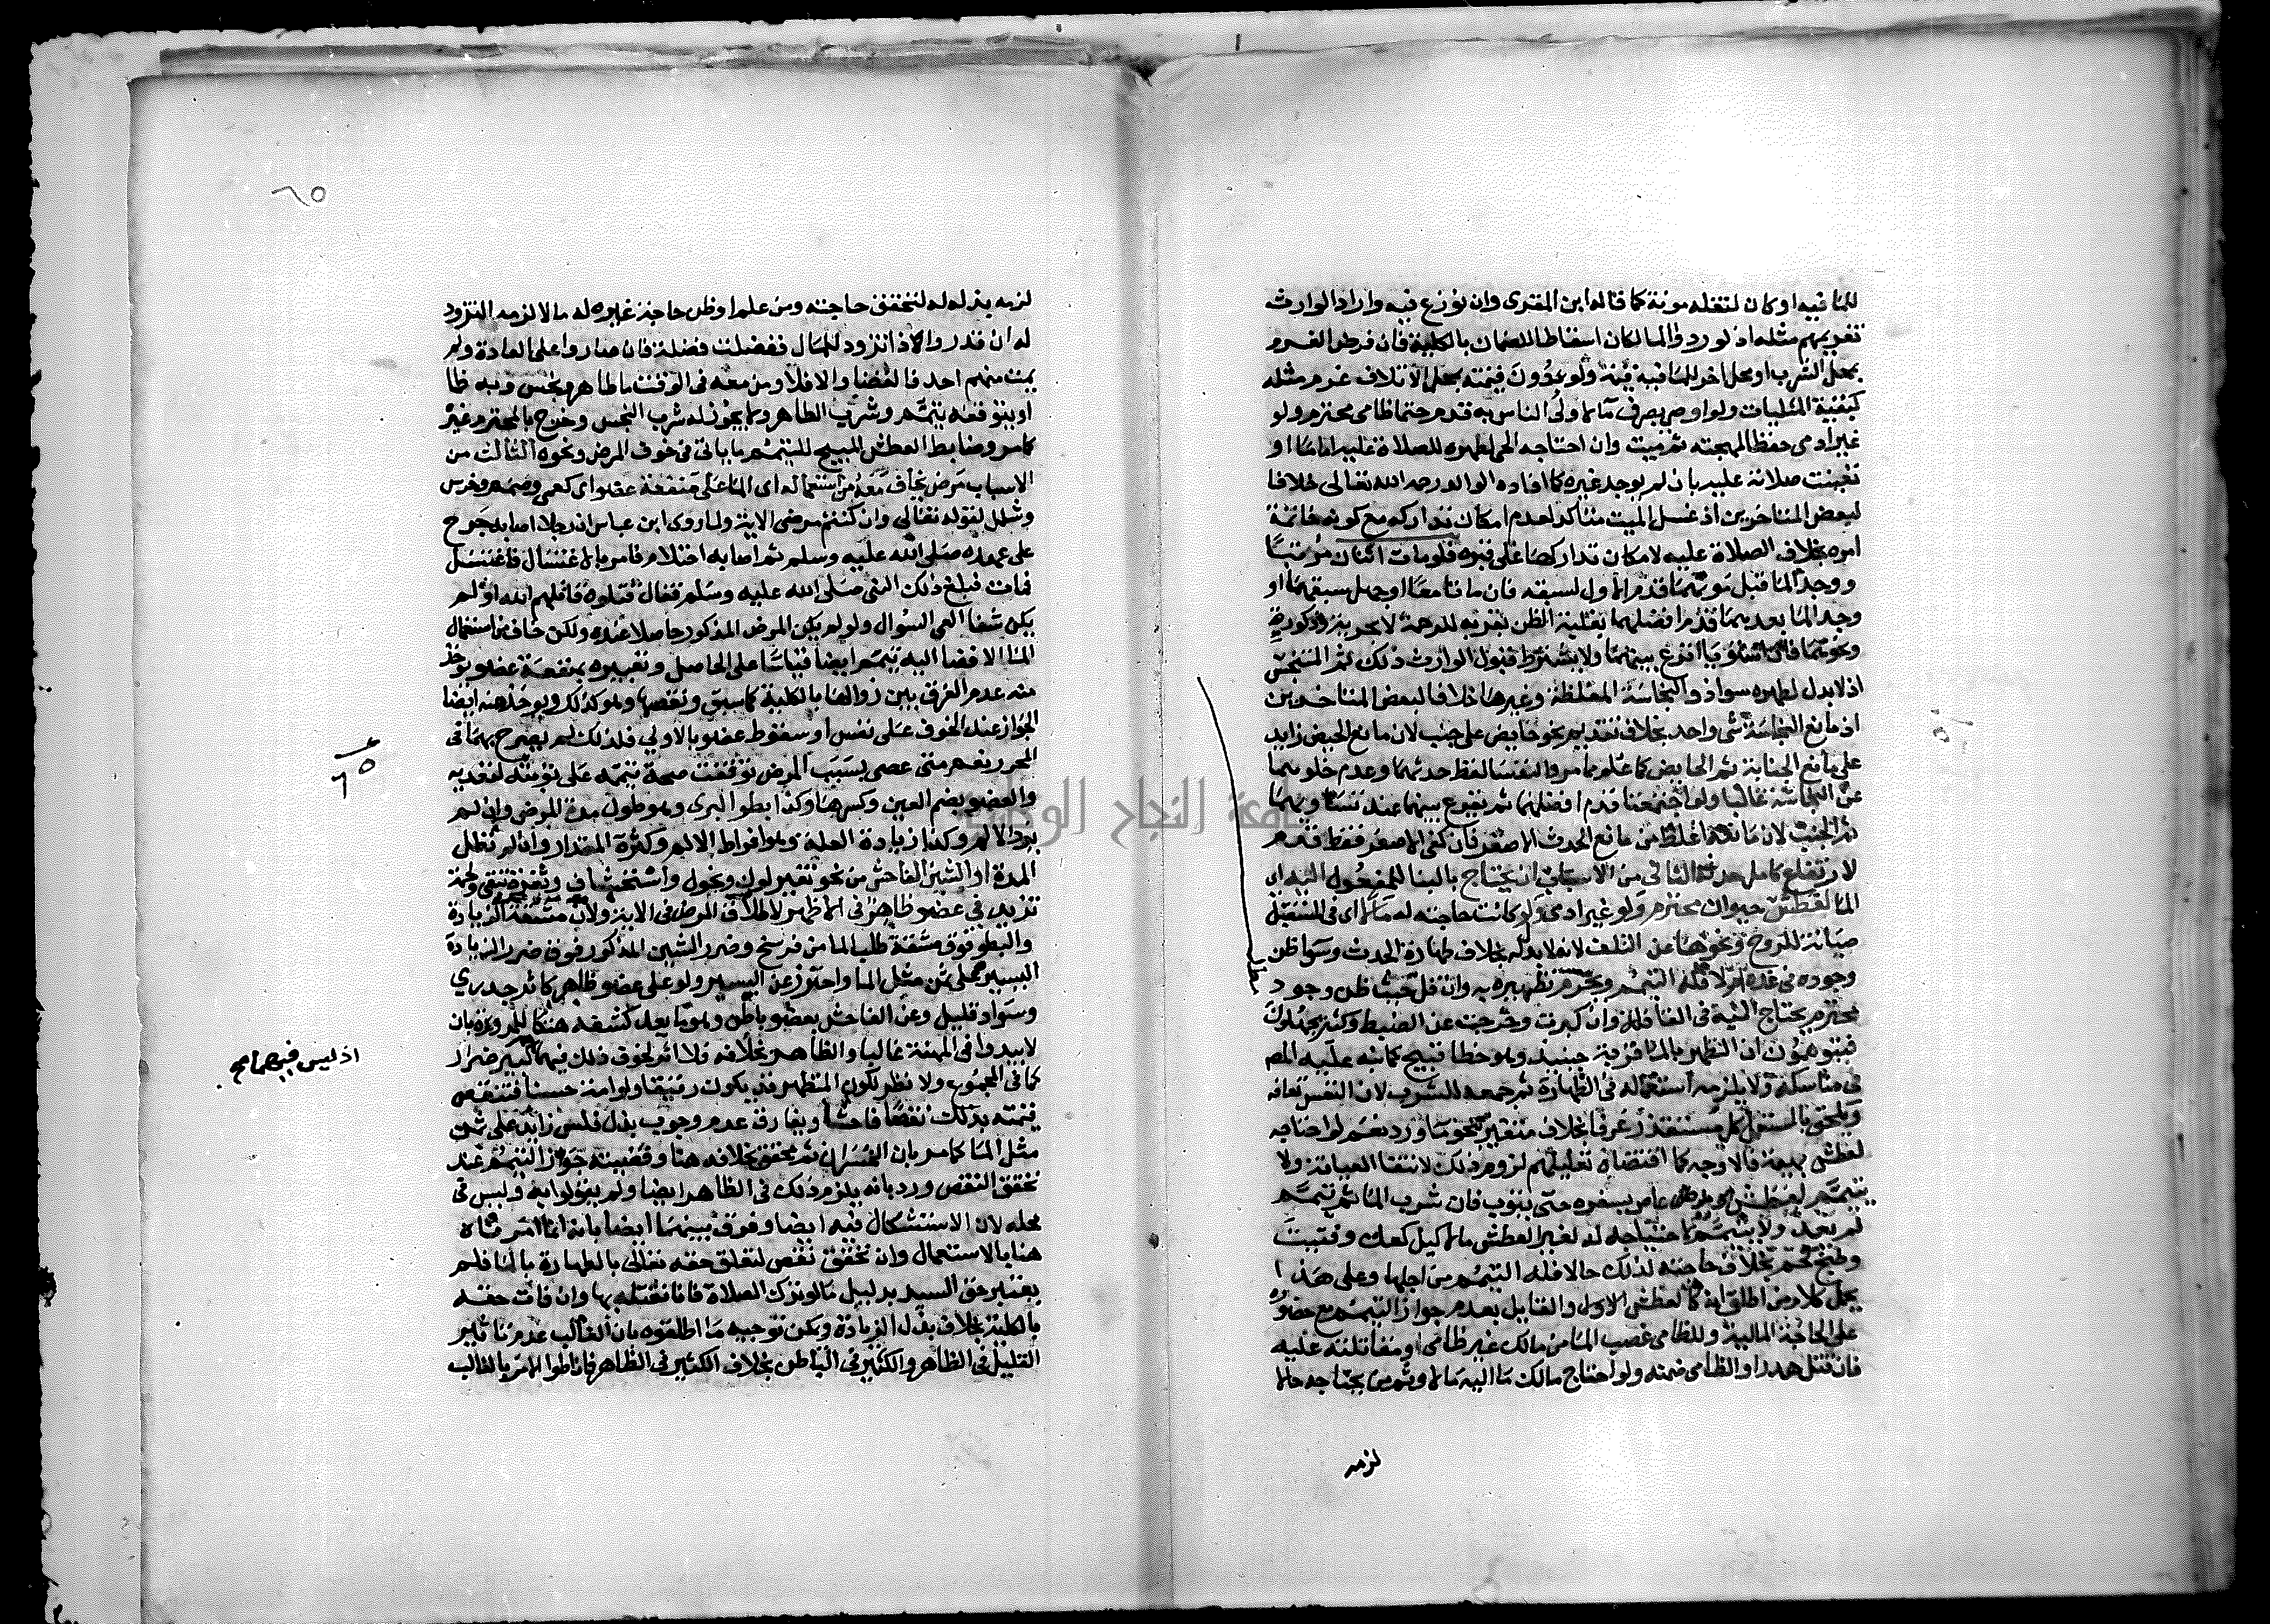 للما فيه او كان لنقله مونة كما قاله ابن المقرى وان نوزع فيه واراد الوارث
تغريمهم مثله اذ لو رد والما لكان اسقاطا للضمان بالكلية فان فرض الغرم
بمحل الشرب او محل اخر للما فيه قيمة ولو دون قيمته بمحل الاتلاف غرم مثله
كبقية المثليات ولو اوصى بصرف ما لاولى الناس به قدم حتما ظامى محترم ولو
غير ادمى حفظا لمهجته ثم ميت وان احتاجه الحى لطهره للصلاة عليه اماما او
تعينت صلاته عليه بان لم يوجد غيره كما افاده الوالد رحمه الله تعالى خلافا
لبعض المتاخرين اذ غسل الميت متاكد لعدم امكان تداركه مع كونه خاتمة
امره بخلاف الصلاة عليه لامكان تداركها على قبره فلو مات اثنان مرتبا
ووجد الما قبل موتهما قدم الاول لسبقه فان ماتا معا او جهل سبقهما او
وجد الما بعدهما قدم افضلهما بغلبة الظن بقربه للرحمة لا بحرية وذكورة
ونحوهما فان استويا اقرع بينهما ولا يشترط قبول الوارث ذلك ثم المتنجس
اذ لا بدل لطهره سوا ذو النجاسة المغلظة وغيرها خلافا لبعض المتاخرين
اذ مانع النجاسة شى واحد بخلاف تقديم نحو حايض على جنب لان مانع الحيض زايد
على مانع الجنابة ثم الحايض كما علم مما مر والنفسا لغلظ حدثهما وعدم خلوهما
عن النجاسة غالبا ولو اجتمعتا قدم افضلهما ثم يقرع بينهما عند تساويهما
ثم الجنب لان مانعه اغلظ من مانع الحدث الاصغر فان كفى الاصغر فقط قدم
لارتفاع كامل حدثه الثانى من الاسباب ان يحتاج بالبنا للمفعول اليه اى
الما لعطش حيوان محترم ولو غير ادمى ولو كانت حاجته له مالا اى فى المستقبل
صيانة للروح ونحوها عن التلف لانه لا بدل له بخلاف طهارة الحدث وسوا ظن
وجوده فى غده ام لا فله التيمم ويحرم تطهيره به وان قل حيث ظن وجود
محترم يحتاج اليه فى القافلة وان كبرت وخرجت عن الضبط وكثير يجهلون
فيتوهمون ان التطهر بالما قربة حينيذ وهو خطا قبيح كما نبه عليه المص
فى مناسكه ولا يلزمه استعماله فى الطهارة ثم جمعه للشرب لان النفس تعافه
ويلحق بالمستعمل كل مستقذر عرفا بخلاف متغير بنحو ما ورد نعم لو احتاجه
لعطش بهيمة فالاوجه كما اقتضاه تعليلهم لزوم ذلك لانتفا العيافة ولا
يتيمم لعطش او مرض عاص بسفره حتى يتوب فان شرب الما ثم تيمم
لم يعد ولا يتيمم لاحتياجه له لغير العطش مالا كبل كعك وفتيت
وطبخ لحم بخلاف حاجته لذلك حالا فله التيمم من اجلها وعلى هذا
يحمل كلام من اطلق انه كالعطش الاول والقايل بعدم جواز التيمم مع حضوره
على الحاجة المالية وللظامى غصب الما من مالك غير ظامى ومقاتلته عليه
فان قتل هدر او الظامى ضمنه ولو احتاج مالك ما اليه مالا وثم من يحتاجه حالا
لزمه
٦٥
لزمه بذله له لتحقق حاجته ومن علم او ظن حاجة غيره له مالا لزمه التزود
له ان قدر والا فلا اذا تزود للمال ففضلت فضلة فان صاروا على العادة ولم
يمت منهم احد فالقضا والا فلا ومن معه فى الوقت ما طاهر ونجس وبه ظما
او يتوقعه يتيمم وشرب الطاهر ولا يجوز له شرب النجس وخرج بالمحترم غيره
كما مر وضابط العطش المبيح للتيمم ما ياتى فى خوف المرض ونحوه الثالث من
الاسباب مرض يخاف معه من استعماله اى الما على منفعة عضو اى كعمى وصمم وخرس
وشلل لقوله تعالى وان كنتم مرضى الاية ولما روى ابن عباس ان رجلا اصابه جرح
على عهده صلى الله عليه وسلم ثم اصابه احتلام فامر بالاغتسال فاغتسل
فمات فبلغ ذلك النبى صلى الله عليه وسلم فقال قتلوه قاتلهم الله اولم
يكن شفا العى السوال ولو لم يكن المرض المذكور حاصلا عنده ولكن خاف من استعمال
الما الافضا اليه تيمم ايضا قياسا على الحاصل وتعبيره بمنفعة عضو يوخذ
منه عدم الفرق بين زوالها بالكلية كما سبق ونقصها وهو كذلك ويوخذ منه ايضا
الجواز عند الخوف على نفس او سقوط عضو بالاولى فلذلك لم يصرح بهما فى
المحرر نعم متى عصى بسبب المرض توقفت صحة تيممه على توبته لتعديه
والعضو بضم العين وكسرها وكذا بطو البرى وهو طول مدة المرض وان لم
يزد الالم وكذا زيادة العلة وهو افراط الالم وكثرة المقدار وان لم تطل
المدة او الشين الفاحش من نحو تغير لون ونحول واستحشاف وثغرة تبقى ولحمة
تزيد فى عضو ظاهر فى الاظهر لاطلاق المرض فى الاية ولان مشقة الزيادة
والبطو فوق مشقة طلب الما من فرسخ وضرر الشين المذكور فوق ضرر الزيادة
اليسيرة على ثمن مثل الما واحترز عن اليسير ولو على عضو ظاهر كاثر جدرى
وسواد قليل وعن الفاحش بعضو باطن وهو ما يعد كشفه هتكا للمروة بان
لا يبدوا فى المهنة غالبا والظاهر بخلافه فلا اثر لخوف ذلك فيهما كبير ضرر
كما فى المجموع ولا نظر لكون المتطهر قد يكون رقيقا ولو امة حسنا فتنقص
قيمته بذلك نقصا فاحشا ويفارق عدم وجوب بذل فلس زايد على ثمن
مثل الما كما مر بان الخسران ثم محقق بخلافه هنا وقضيته جواز التيمم عند
تحقق النقص ورد بانه يلزم ذلك فى الظاهر ايضا ولم يقولوا به وليس فى
محله لان الاستشكال فيه ايضا وفرق بينهما ايضا بانه انما امرناه
هنا بالاستعمال وان تحقق نقص لتعلق حقه تعالى بالطهارة بالما فلم
يعتبر حق السيد بدليل ما لو ترك الصلاة فانا نقتله بها وان فات حقه
بالكلية بخلاف بذل الزيادة ويمكن توجيه ما اطلقوه بان الغالب عدم تاثير
القليل فى الظاهر والكثير فى الباطن بخلاف الكثير فى الظاهر فاناطوا الامر بالغالب
٦٥
اذ ليس فيهما مح
جامعة النجاح الوطنية